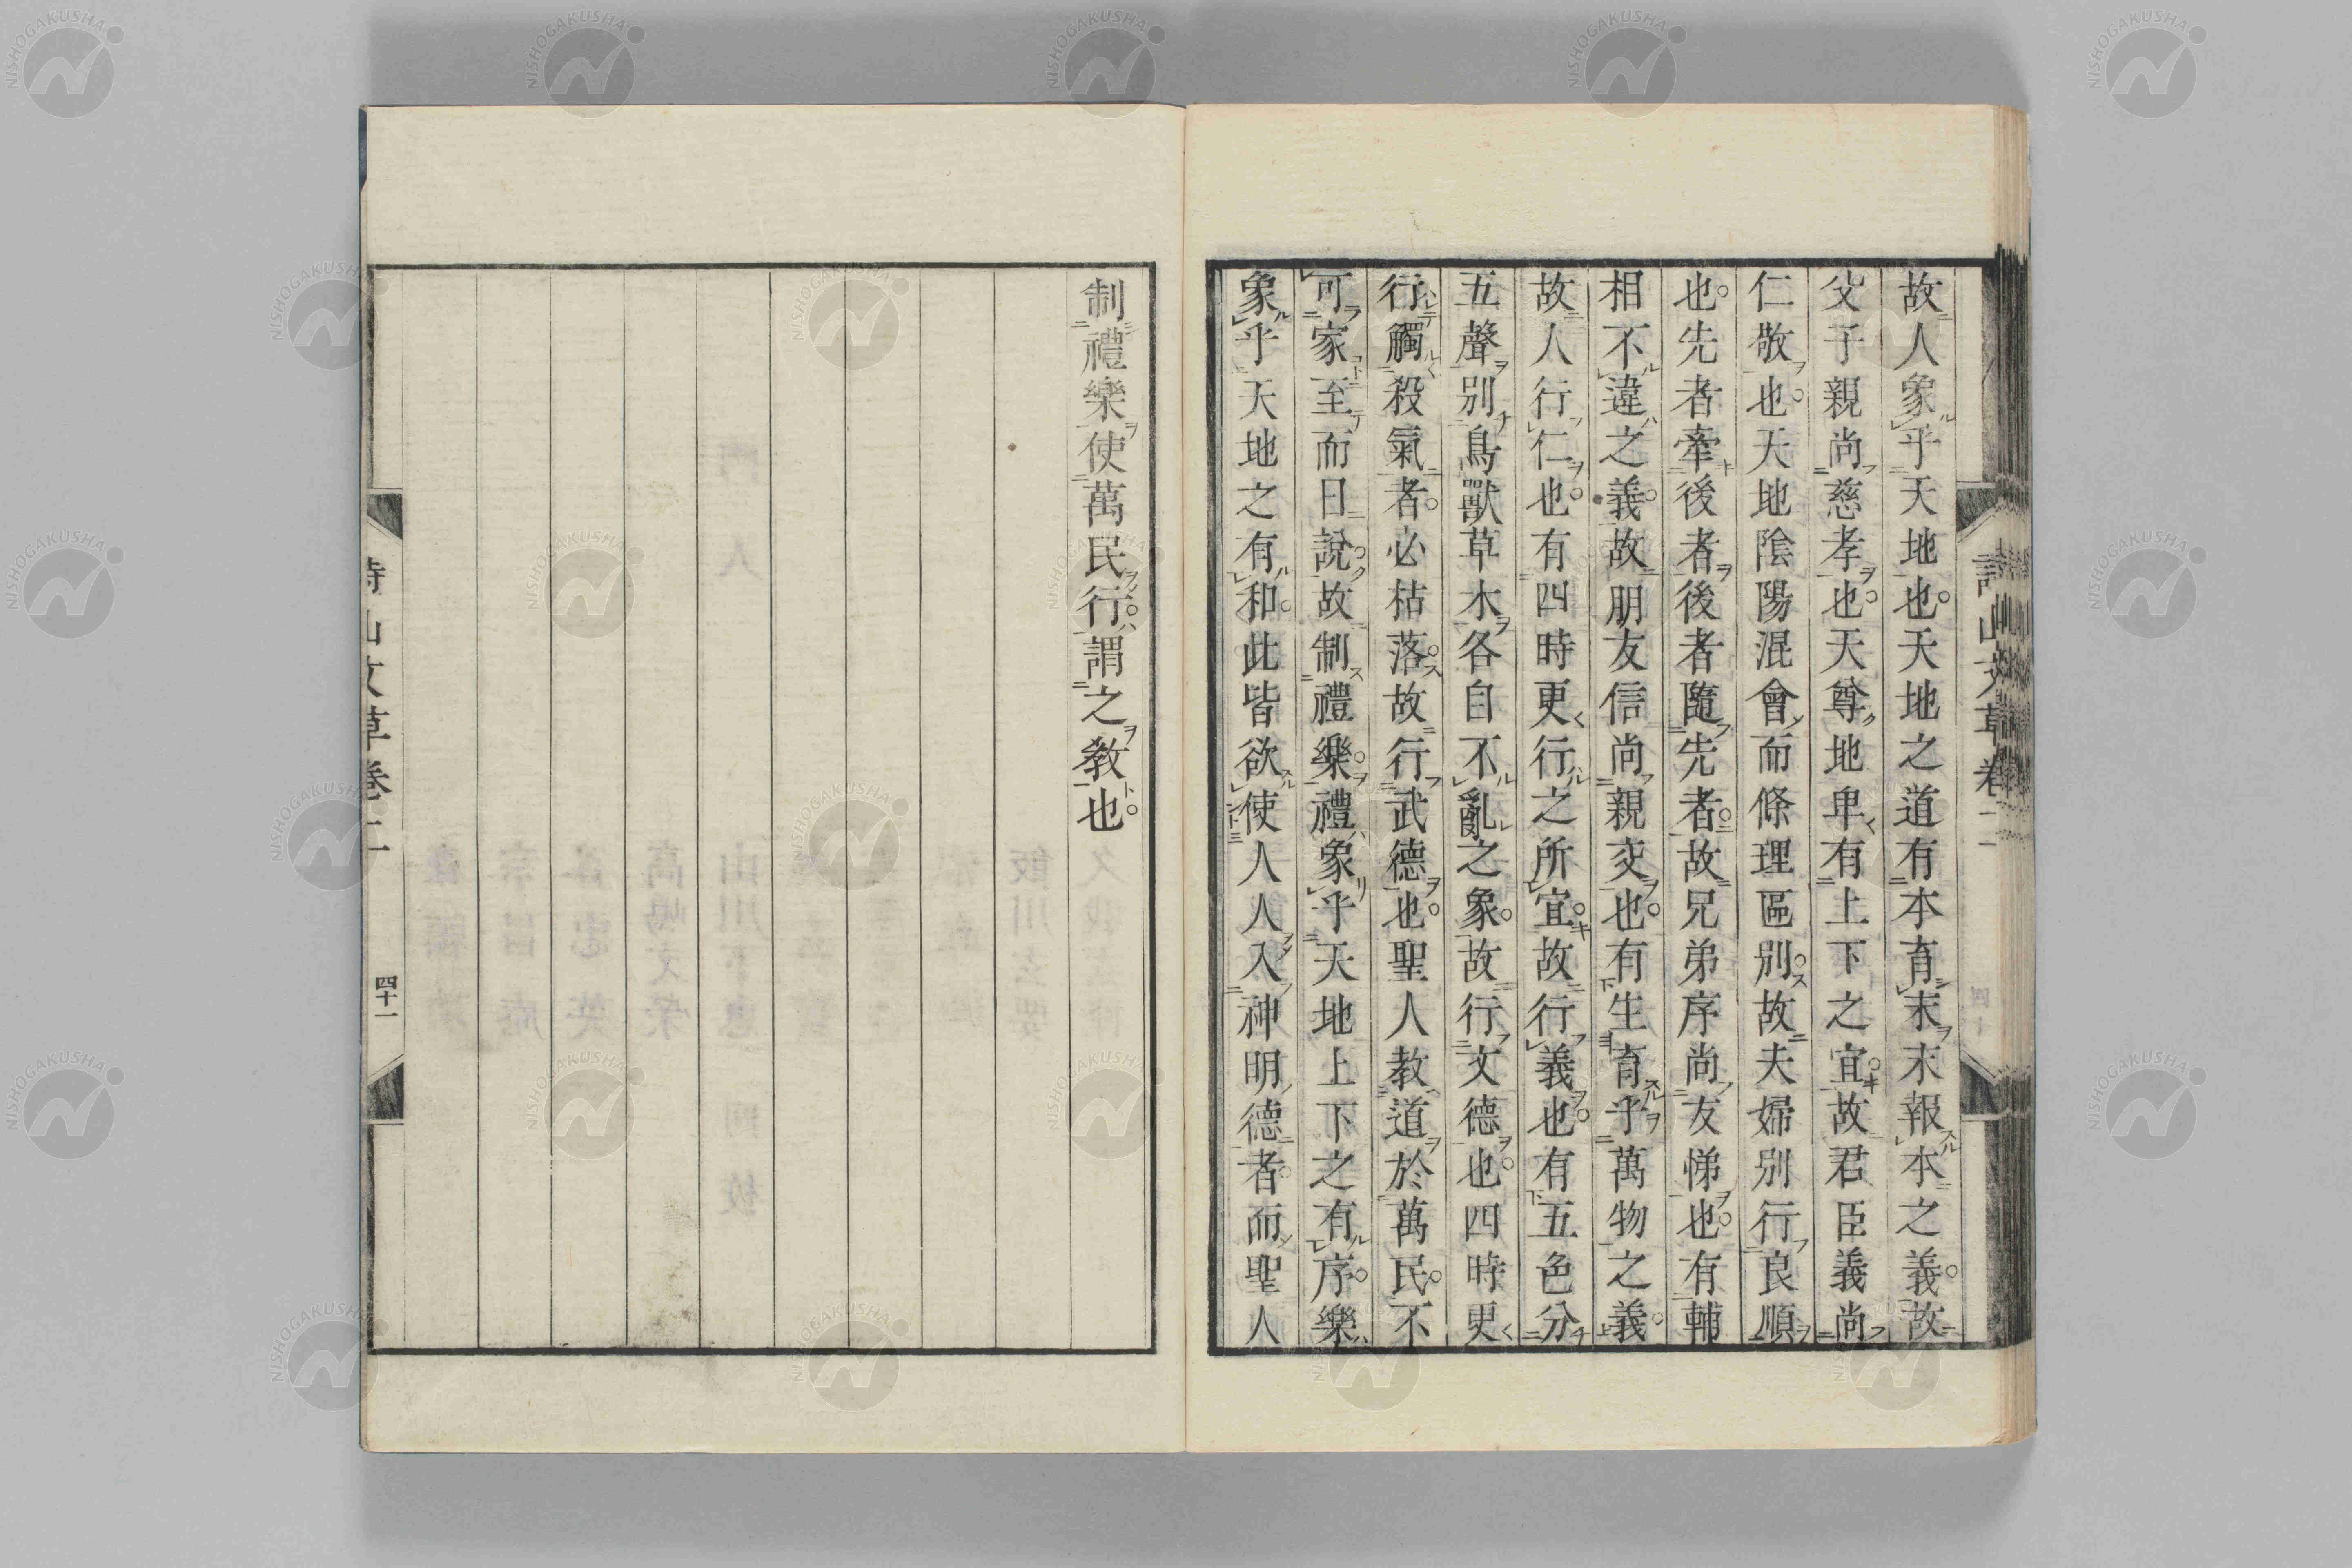 故人象乎天地也天地之道有本育末末報本之義故
父子親尚慈孝也天尊地卑有上下之宜故君臣義尚
仁敬也天地陰陽混會而條理區別故夫婦別行良順
也先者牽後者後者隨先者故兄弟序尚友悌也有輔
相不違之義故朋友信尚親交也有生育乎萬物之義
故人行仁也有四時更行之所宜故行義也有五色分
五聲別鳥獸草木各自不亂之象故行文德也四時更
行觸殺氣者必枯落故行武德也聖人教道於萬民不
可家至而日說故制禮樂禮象乎天地上下之有序樂
象乎天地之有和此皆欲使人人入神明德者而聖人
制禮樂使萬民行謂之教也
山文草卷二
四十一